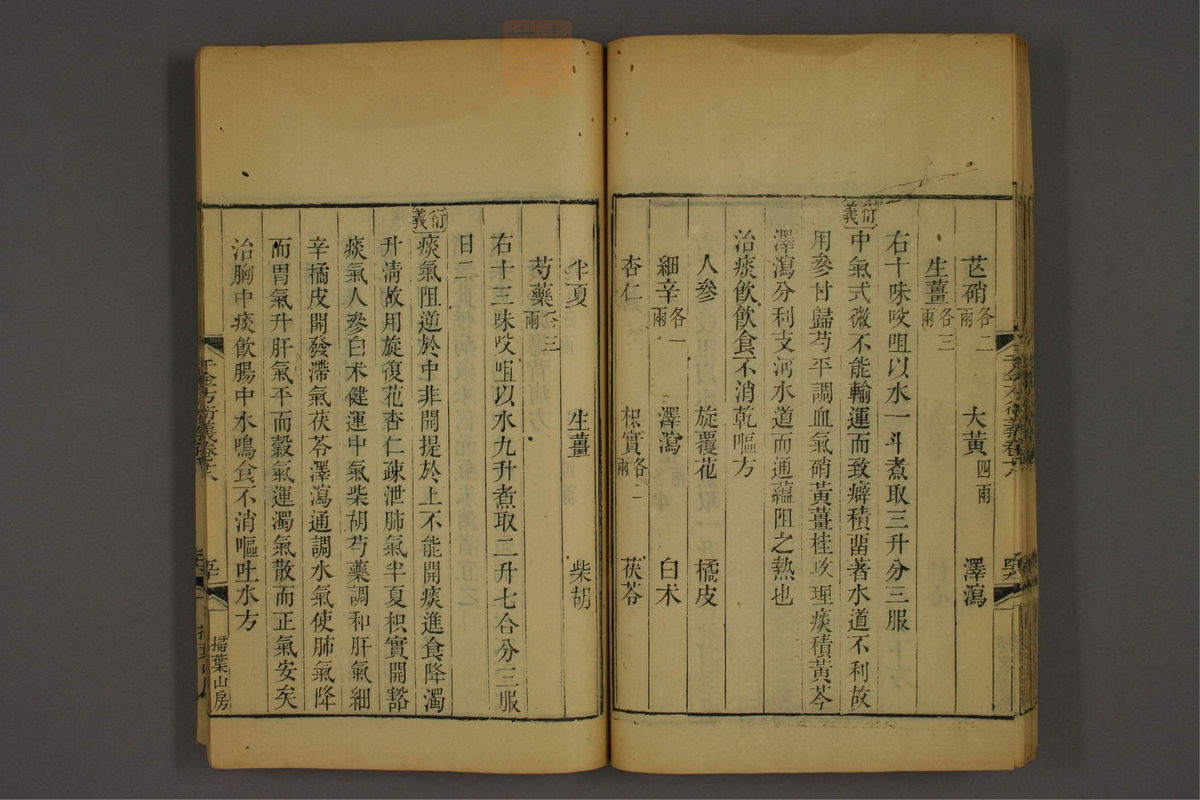 芒硝各二兩　大黃四兩　澤瀉
生薑各三兩
右十味㕮咀以水一斗煮取三升分三服
衍義
中氣式微不能輸運而致癖積畱著水道不利故
用參甘歸芍平調血氣硝黃薑桂攻理痰積黃芩
澤瀉分利支河水道而通蘊阻之熱也
治痰飲飲食不消乾嘔方
人參　旋覆花　橘皮
細辛各一兩　澤瀉　白朮
杏仁　枳實各二兩　茯苓
半夏　生薑　柴胡
芍藥各三兩
右十三味㕮咀以水九升煮取二升七合分三服
日二
衍義
痰氣阻逆於中非開提於上不能開痰進食降濁
升清故用旋復花杏仁疎泄肺氣半夏枳實開豁
痰氣人參白朮健運中氣柴胡芍藥調和肝氣細
辛橘皮開發滯氣茯苓澤瀉通調水氣使肺氣降
而胃氣升肝氣平而穀氣運濁氣散而正氣安矣
治胸中痰飲腸中水鳴食不消嘔吐水方
千金方衍義卷十八
掃葉山房